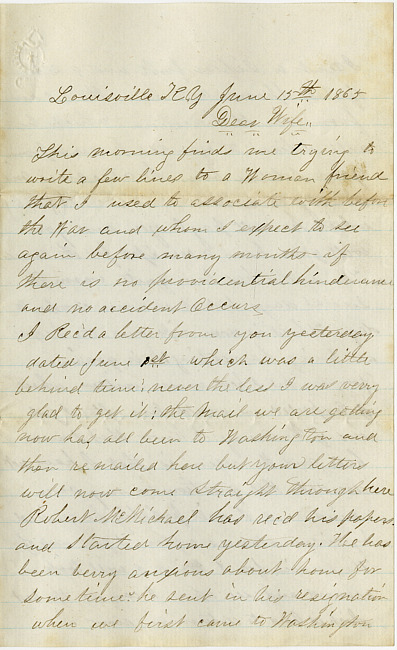 Louisville KY June 15th 1865
Dear Wife,,
This morning finds me trying to
write a few lines to a Woman friend
that I used to associate with before
the War and whom I expect to see
again before many months - if
there is no providential hinderance
and no accident Occurs
I Recd a letter from you yesterday
dated June 1st which was a little
behind time, never the less I was very
glad to get it; the Mail we are getting
now has all been to Washington and
then remailed here but your letters
will now come straight through here
Robert McMichael has recd his papers
and started home yesterday. He has
been very anxious about home for
sometime. he sent in his resignation
when we first came to Washington